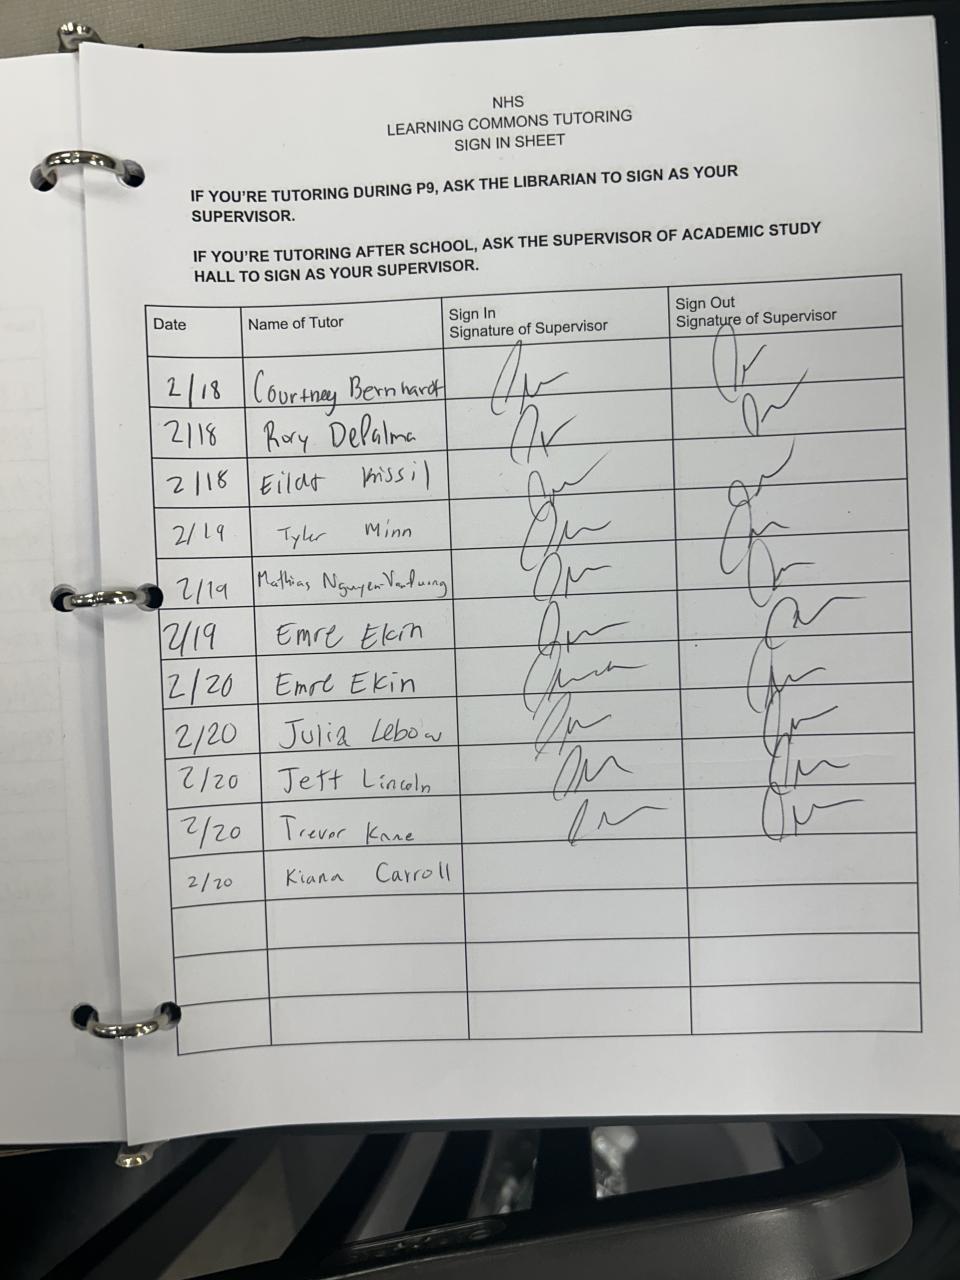 NHS
LEARNING COMMONS TUTORING
SIGN IN SHEET
IF YOU'RE TUTORING DURING P9, ASK THE LIBRARIAN TO SIGN AS YOUR
SUPERVISOR.
IF YOU'RE TUTORING AFTER SCHOOL, ASK THE SUPERVISOR OF ACADEMIC STUDY
HALL TO SIGN AS YOUR SUPERVISOR.
Date Name of Tutor Sign In Sign Out
Signature of Supervisor Signature of Supervisor
2/18 Courtney Bernhardt
2/18 Rory DePalma
2/18 Kissil
2/19 Tyler Minn
2/19 Mathias
2/19 Emre Ekin
2/20 Emre Ekin
2/20 Julia Lebow
2/20 Jeff Lincoln
2/20 Trevor Kane
2/20 Kiana Carroll